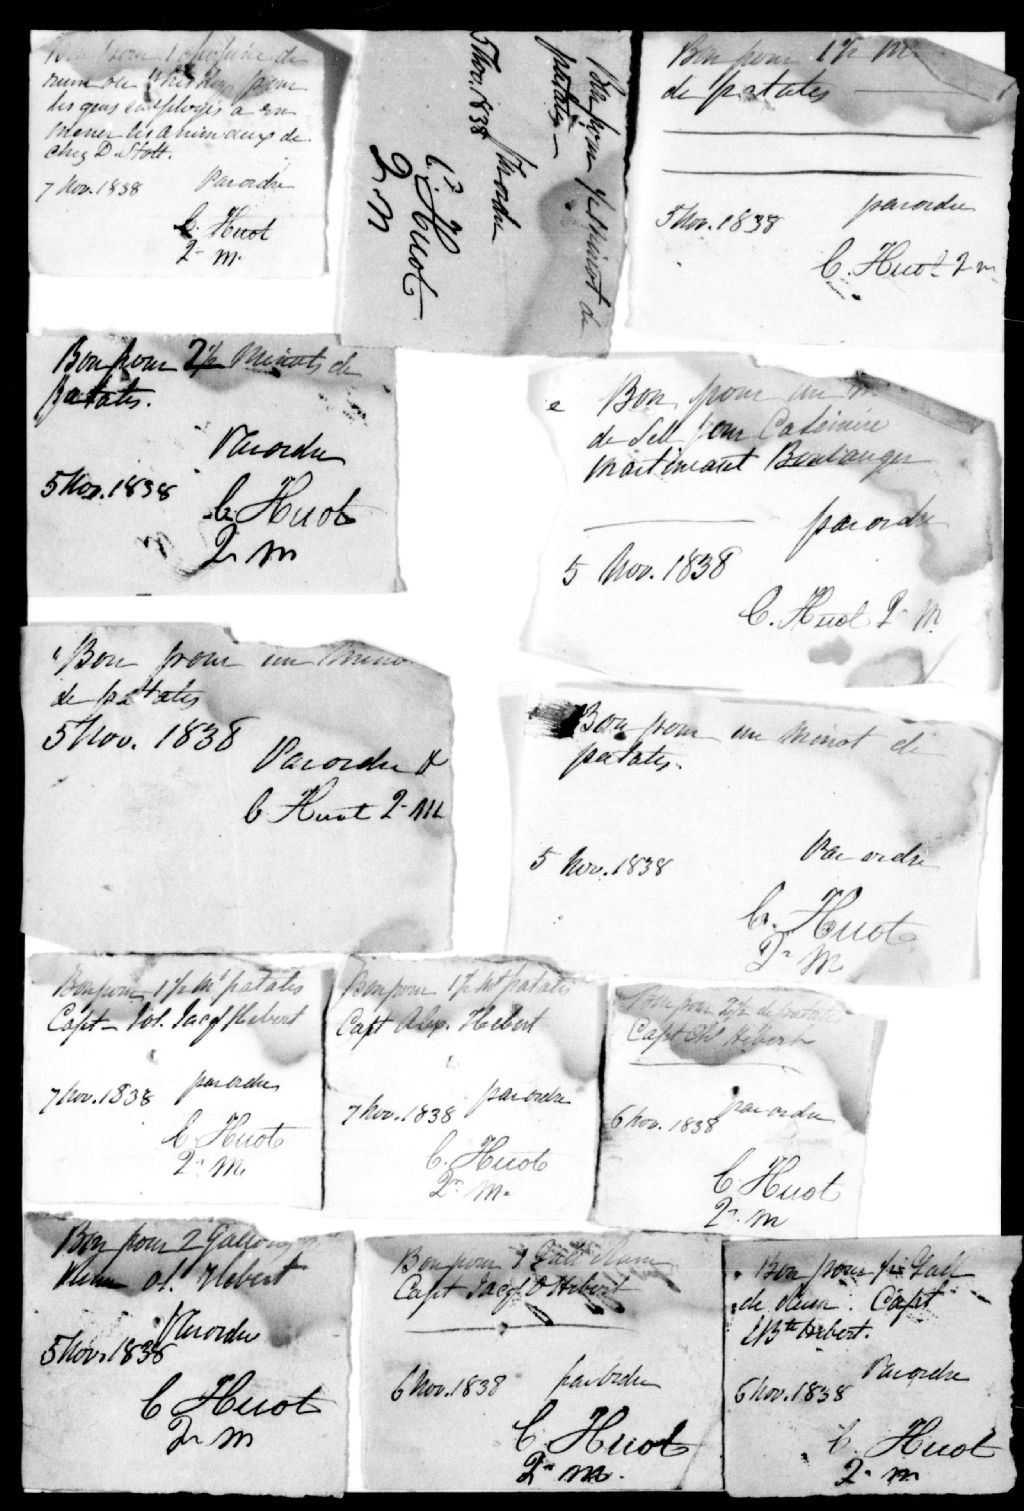 Bon pour 1 chopine de
rum ou Whiskey pour
les gens employés a en
mener les animaux de
chez D. Stott.
7 Nov. 1838 Par ordre
C. Huot
2- M.
Bon pour 1/2 minot de
patates
Par ordre
5 Nov. 1838
C. Huot
2 M
Bon pour 1 1/2 M.
de patates
par ordre
5 Nov. 1838
C. Huot 2 m
Bon pour 2 1/2 Minots de
patates.
Par ordre
5 Nov. 1838
C. Huot
2- M
Bon pour un m
de Sell pour Casimire
Martineault Boulanger
par ordre
5 Nov. 1838
C. Huot 2- M.
Bon pour un Mino
de patates
5 Nov. 1838
Par ordre
C. Huot 2- M
Bon pour un Minot de
patates.
Par ordre
5 Nov. 1838
C. Huot
2- M
Bon pour 1 1/2 Mt patates
Capt- Jacq Hebert
par ordre
7 Nov. 1838
C. Huot
2- M.
Bon pour 1 1/2 Mt patates
Capt Alex. Hebert
par ordre
7 Nov. 1838
C. Huot
2- M.
Bon pour 2 1/2 de patates
Capt Chs Hebert
par ordre
6 Nov. 1838
C. Huot
2- M
Bon pour 2 Gallons
Rum Hebert
Par ordre
5 Nov. 1838
C Huot
2- M
Bon pour 1 Gall Rum
Capt Jacq. O Hebert
6 Nov. 1838 par ordre
C. Huot
2- M.
Bon pour 1/2 Gall
de Rum. Capt
J Bte Hebert.
Par ordre
6 Nov. 1838
C. Huot
2- M